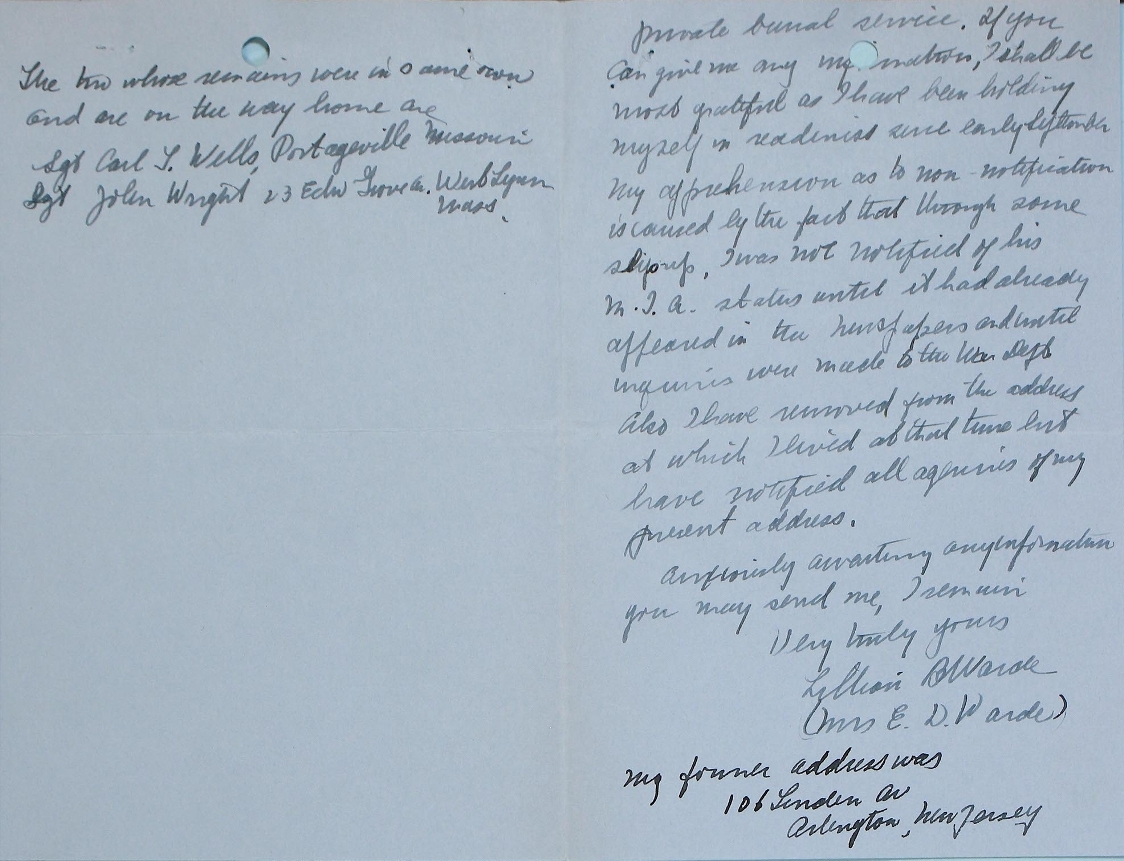 The two whose remains were in same town
and are on the way home are
Sgt Carl T. Wells, Portageville Missouri
Sgt John Wright 23 Elm Grove Av. West Lynn
Mass.
private burial service. If you
can give me any information, I shall be
most grateful as I have been holding
myself in readiness since early September
My apprehension as to non-notification
is caused by the fact that through some
slip-up, I was not notified of his
M.I.A. status until it had already
appeared in the newspapers and until
inquiries were made to the War Dept
Also I have removed from the address
at which I lived at that time but
have notified all agencies of my
present address.
Anxiously awaiting any information
you may send me, I remain
Very truly yours
Lillian B Warde
(Mrs E. D. Warde)
My former address was
106 Linden Av
Arlington, New Jersey